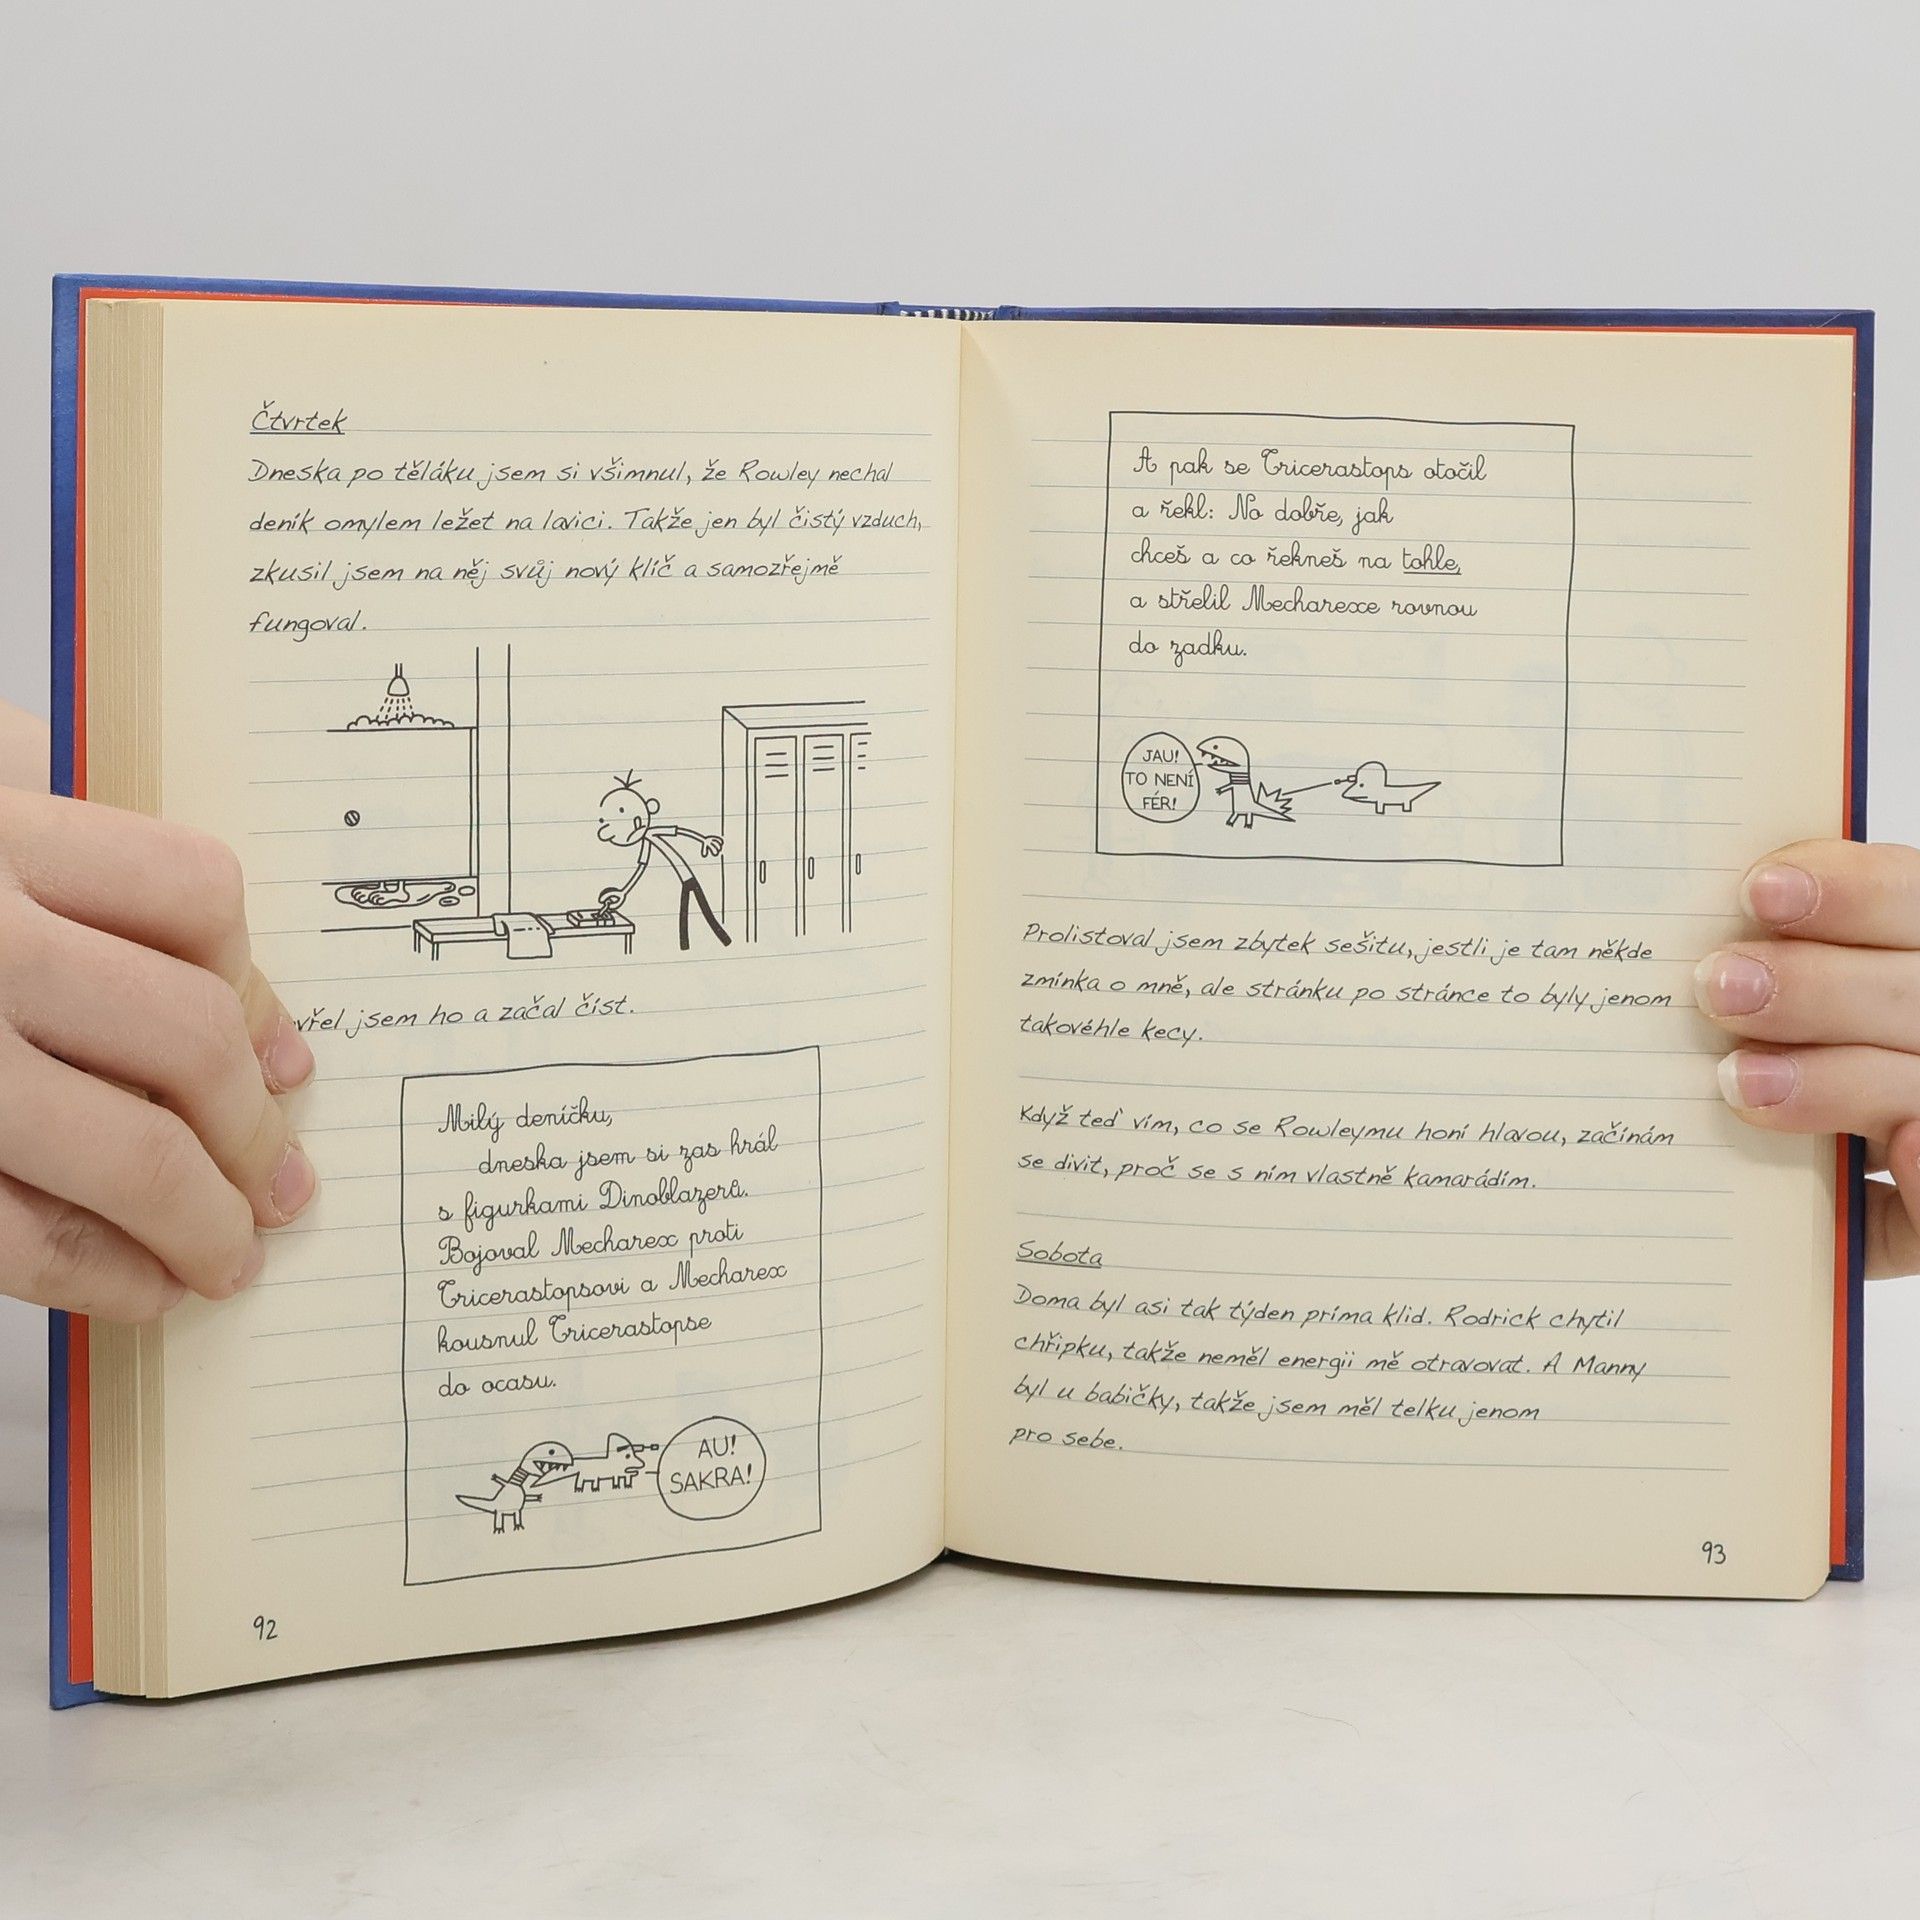 Čtvrtek
Dneska po těláku jsem si všimnul, že Rowley nechal
deník omylem ležet na lavici. Takže jen byl čistý vzduch,
zkusil jsem na něj svůj nový klíč a samozřejmě
fungoval.
jsem ho a začal číst.
Milý deníčku,
dneska jsem si zas hrál
s figurkami Dinoblazerů.
Bojoval Mecharex proti
Tricerastopsovi a Mecharex
kousnul Tricerastopse
do ocasu.
AU!
SAKRA!
92
A pak se Tricerastops otočil
a řekl: No dobře, jak
chceš a co řekneš na tohle,
a střelil Mecharexe rovnou
do zadku.
JAU!
TO NENÍ
FÉR!
Prolistoval jsem zbytek sešitu, jestli je tam někde
zmínka o mně, ale stránku po stránce to byly jenom
takovéhle kecy.
Když teď vím, co se Rowleymu honí hlavou, začínám
se divit, proč se s ním vlastně kamarádím.
Sobota
Doma byl asi tak týden príma klid. Rodrick chytil
chřipku, takže neměl energii mě otravovat. A Manny
byl u babičky, takže jsem měl telku jenom
pro sebe.
93